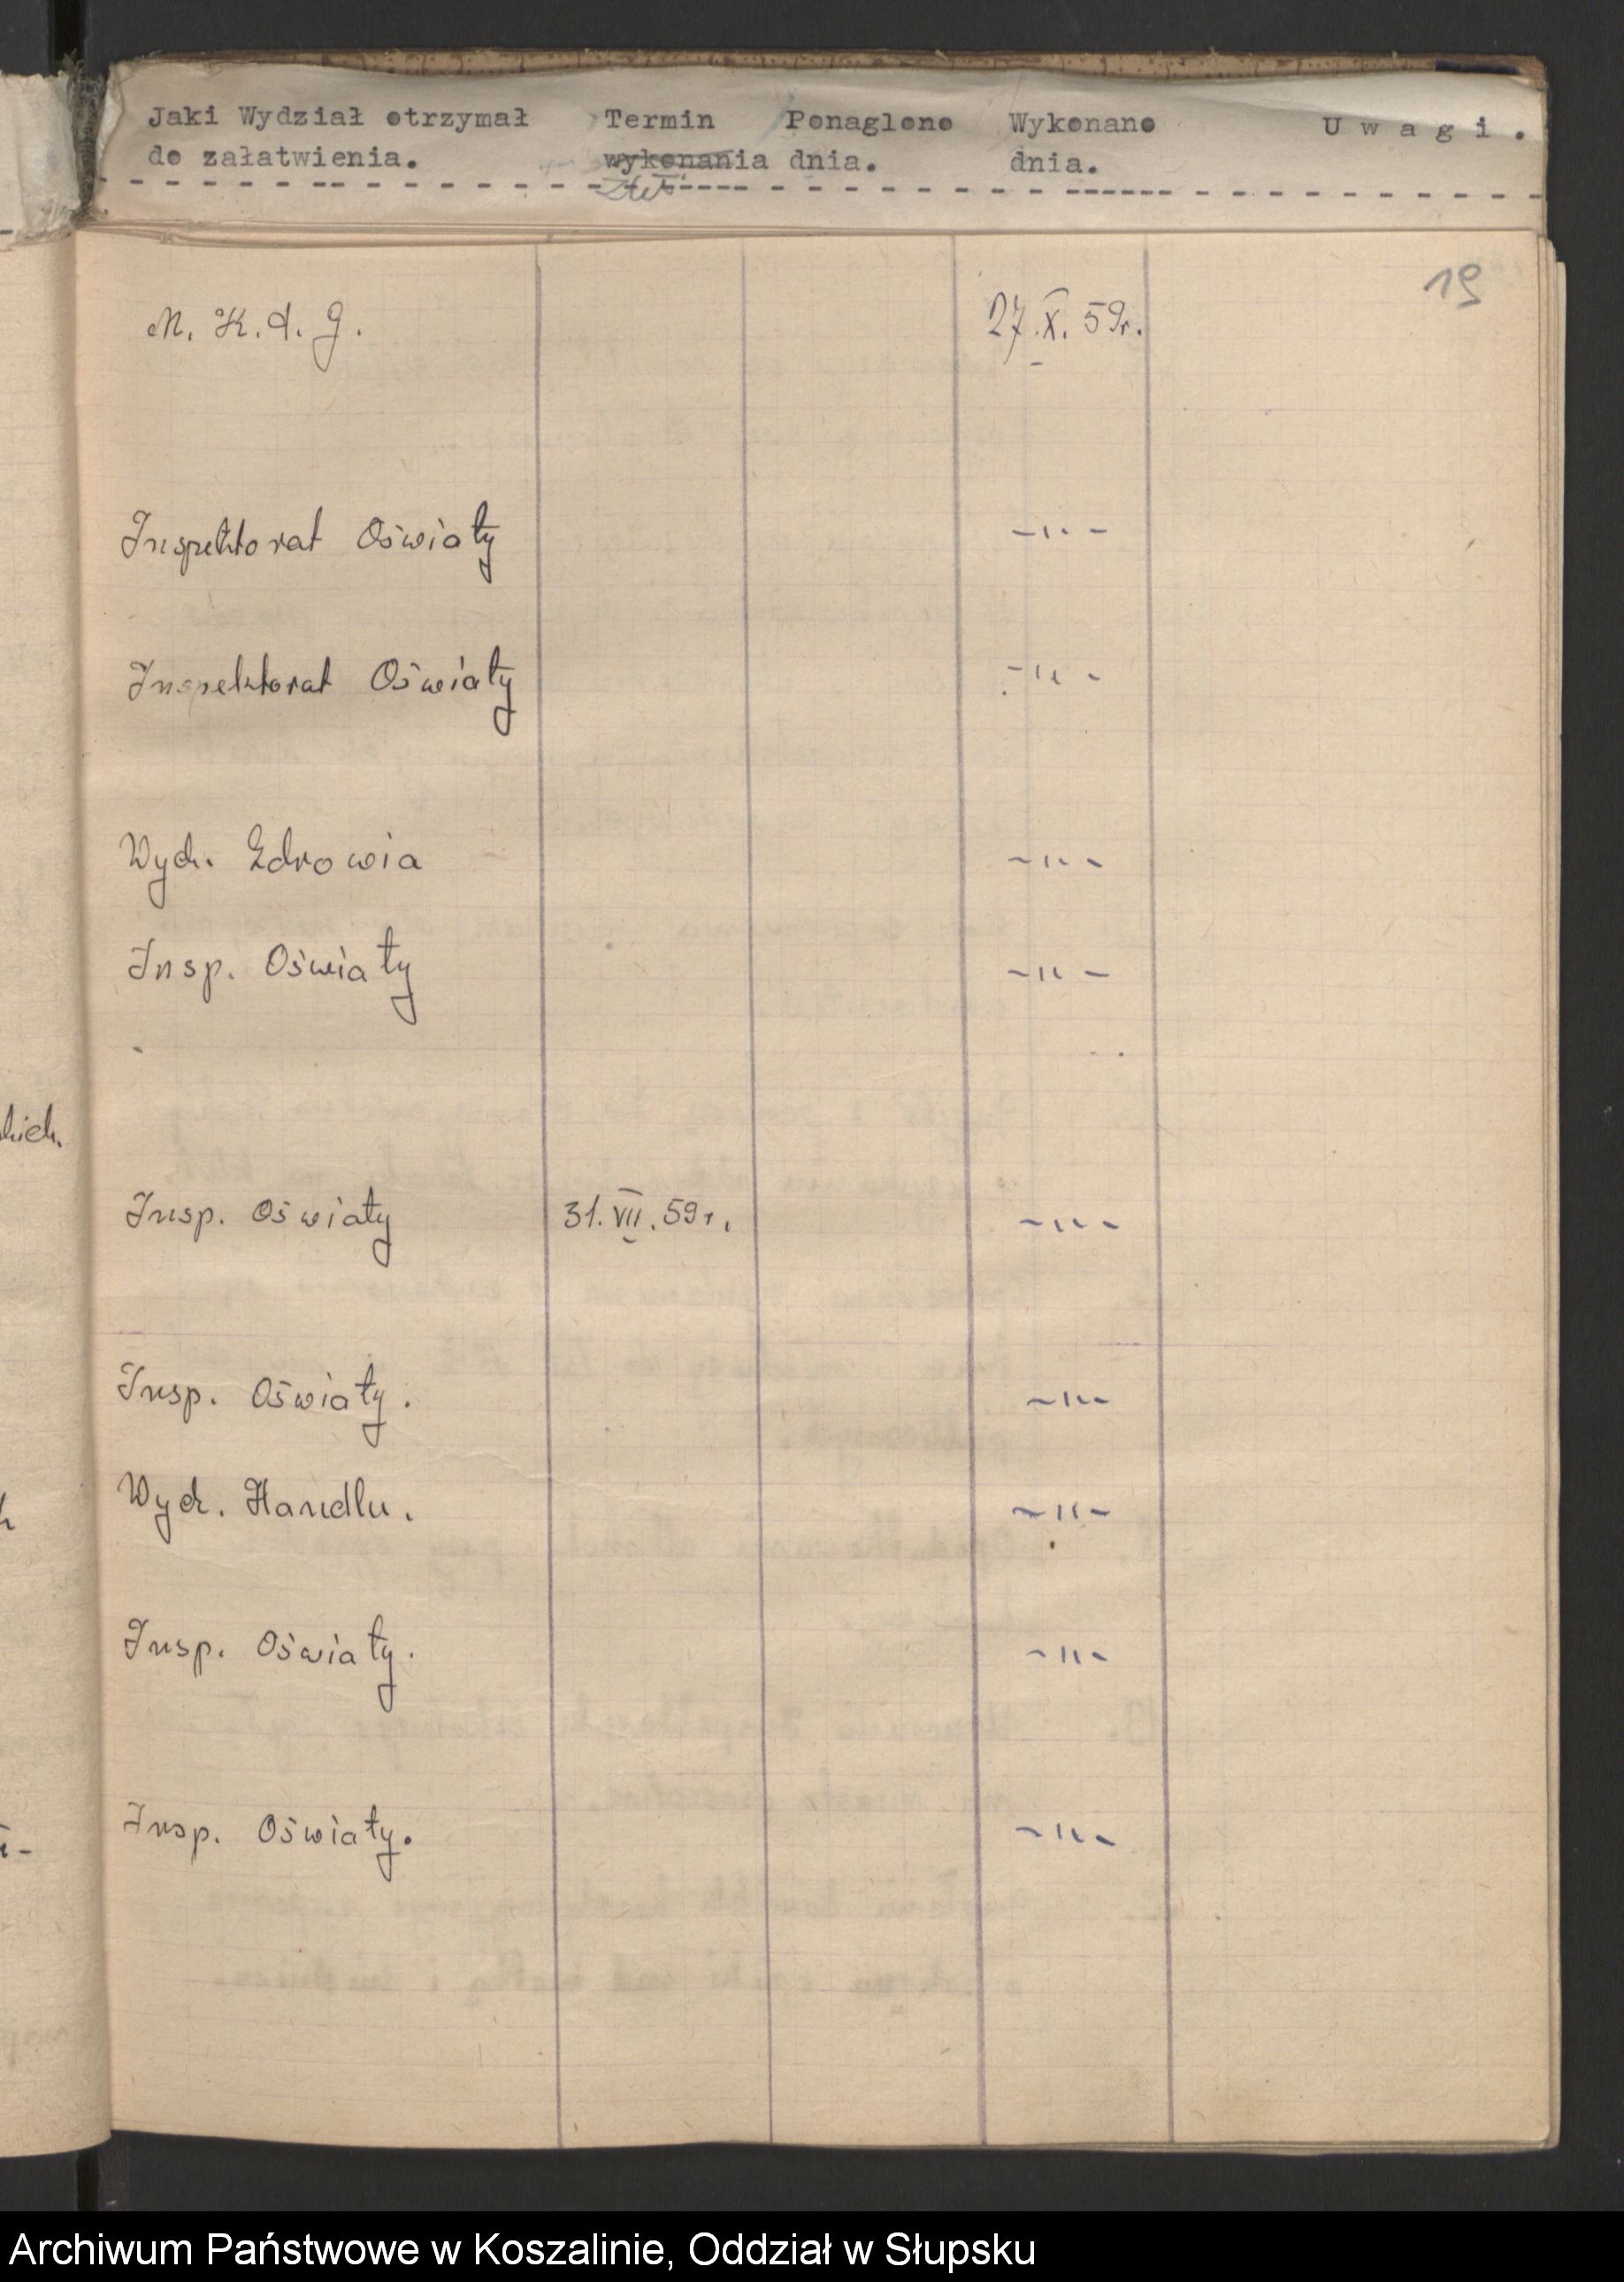 Jaki Wydział otrzymał Termin Ponaglono Wykonano U w a g i .
do załatwienia. wykonania dnia. dnia.
19
M. K. d. G. 27.X.59r.
Inspektorat Oświaty -"-
Inspektorat Oświaty -"-
Wydz. Zdrowia -"-
Insp. Oświaty -"-
Insp. Oświaty 31.VII.59r. -"-
Insp. Oświaty. -"-
Wydz. Handlu. -"-
Insp. Oświaty. -"-
Insp. Oświaty. -"-
Archiwum Państwowe w Koszalinie, Oddział w Słupsku